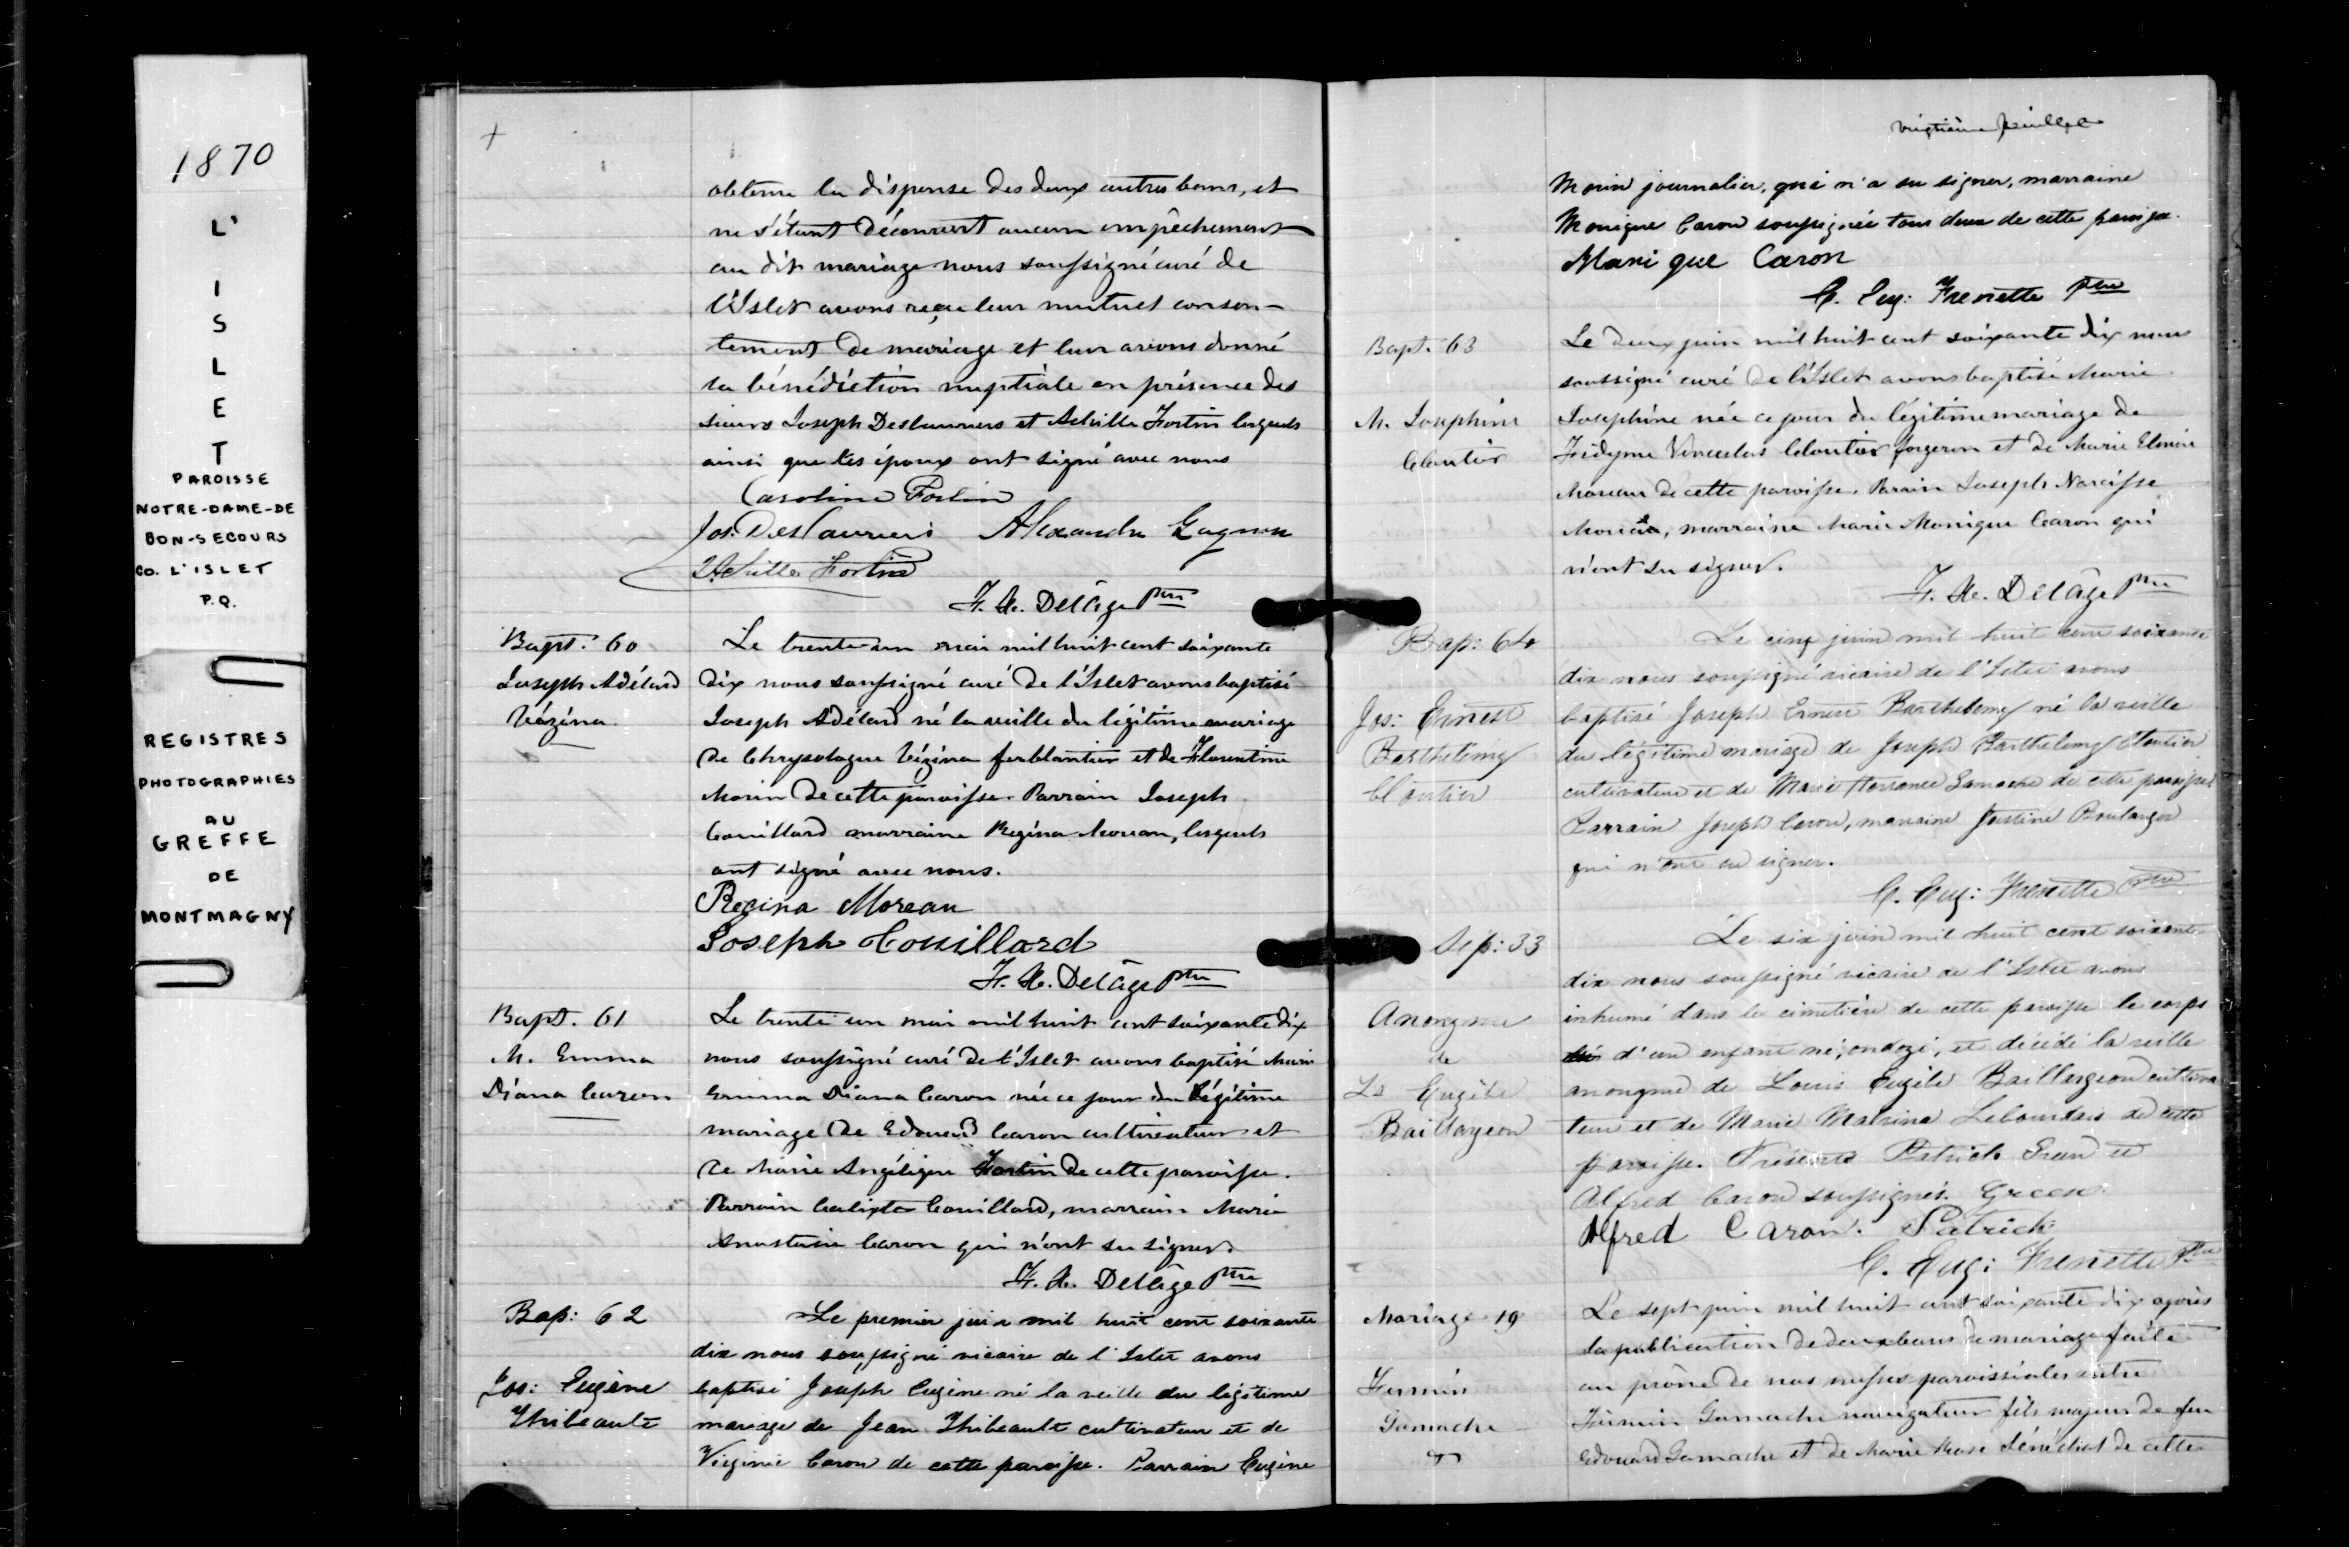 1870
L'
I
S
L
E
T
PAROISSE
NOTRE-DAME-DE
BON-SECOURS
CO. L'ISLET
P.Q.
REGISTRES
PHOTOGRAPHIES
AU
GREFFE
DE
MONTMAGNY
+
obtenu la dispense des deux autres bans, et
ne s'étant découvert aucun empêchement
au dit mariage nous soussigné curé de
l'Islet avons reçu leur mutuel consen-
tement de mariage et leur avons donné
la bénédiction nuptiale en présence des
sieurs Joseph Deslauriers et Achille Fortin lesquels
ainsi que les époux ont signé avec nous
Caroline Fortin
Jos. DesLauriers Alexandre Gagnon
Achille Fortin
F. X. Delâge Ptre
Bapt. 60
Joseph Adélard
Vézina
Le trente-un mai mil huit cent soixante
dix nous soussigné curé de l'Islet avons baptisé
Joseph Adélard né la veille du légitime mariage
de Chrysologue Vézina ferblantier et de Florentine
Morin de cette paroisse. Parrain Joseph
Couillard marraine Régina Moreau, lesquels
ont signé avec nous.
Regina Moreau
Joseph Couillard
F. X. Delâge Ptre
Bapt. 61
M. Emma
Diana Caron
Le trente un mai mil huit cent soixante dix
nous soussigné curé de l'Islet avons baptisé Marie
Emma Diana Caron née ce jour du légitime
mariage de Edouard Caron cultivateur et
de Marie Angélique Fortin de cette paroisse.
Parrain Calixte Couillard, marraine Marie
Anastasie Caron qui n'ont su signer.
F. X. Delâge Ptre
Bap: 62
Jos: Eugène
Thibeault
Le premier juin mil huit cent soixante
dix nous soussigné vicaire de l'Islet avons
baptisé Joseph Eugène né la veille du légitime
mariage de Jean Thibeault cultivateur et de
Virginie Caron de cette paroisse. Parrain Eugène
vingtième feuillet
Morin journalier, qui n'a su signer, marraine
Monique Caron soussignée tous deux de cette paroisse.
Monique Caron
C. Eug: Frenette Ptre
Bapt. 63
M. Josephine
Cloutier
Le deux juin mil huit cent soixante dix nous
soussigné curé de l'Islet avons baptisé Marie
Josephine née ce jour du légitime mariage de
Fidyme Venceslas Cloutier forgeron et de Marie Elmire
Moreau de cette paroisse. Parrain Joseph Narcisse
Moreau, marraine Marie Monique Caron qui
n'ont su signer.
F. X. Delâge Ptre
Bap: 64
Jos: Ernest
Barthelemy
Cloutier
Le cinq juin mil huit cent soixante
dix nous soussigné vicaire de l'Islet avons
baptisé Joseph Ernest Barthelemy né la veille
du légitime mariage de Joseph Barthelemy Cloutier
cultivateur et de Marie Hersance Gamache de cette paroisse
Parrain Joseph Caron, marraine Justine Boulanger
qui n'ont su signer.
C. Eug: Frenette Ptre
Sep: 33
Anonyme
de
Ls Eugèle
Baillargeon
Le six juin mil huit cent soixante-
dix nous soussigné vicaire de l'Islet avons
inhumé dans le cimetière de cette paroisse le corps
d'un enfant né, ondoyé, et décédé la veille
anonyme de Louis Eugèle Baillargeon cultiva
teur et de Marie Malvina Lebourdais de cette
paroisse. Présents Patrick Green et
Alfred Caron soussignés. Green
Alfred Caron. Patrick
C. Eug: Frenette Ptre
Mariage 19
Firmin
Gamache
&
Le sept juin mil huit cent soixante dix après
la publication de deux bans de mariage faite
au prône de nos messes paroissiales entre
Firmin Gamache navigateur fils majeur de feu
Edouard Gamache et de Marie Rose Sénéchal de cette